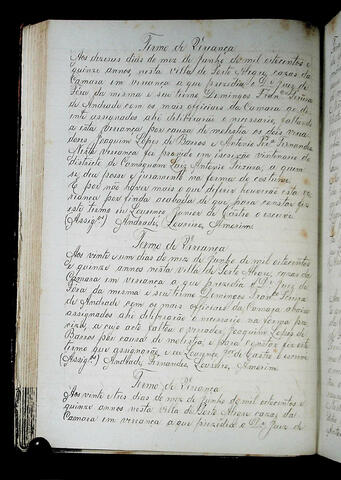 Termo de Vereança
Aos dezeseis dias do mez de Junho de mil oitocentos e
quinze annos, nesta Villa de Porto Alegre, cazas da
Camara em vereança a que prezidio o Dr. Juiz de
Fora da mesma e seu termo Domingos Franco Pereira
de Andrade com os mais officiaes da Camara ao di-
ante assignados ahi deliberarão o necessario, faltando
a esta vereança por causa de molestia os dois verea-
dores Joaquim Lopes de Barros e Antonio Fernandes
Nesta vereança foi provido em escrivão vintenario do
Districto de Luiz Antonio a quem
se deu posse e juramento na forma do costume
E por não haver mais o que deferir houverão esta ve-
reança por finda acabada de que para constar fiz
este termo eu Lourenço Junior de Castro o escrevi
(Assign.os) Andrade, Loureiro, Amorim.
Termo de Vereança
Aos vinte e um dias do mez de Junho de mil oitocentos
e quinze annos nesta Villa de Porto Alegre, cazas da
Camara em vereança a que prezidio o Dr. Juiz de
Fora da mesma e seu termo Domingos Pereira
de Andrade com os mais officiaes da Camara abaixo
assignados ahi deliberarão o necessario na forma
a cujo acto faltou o vereador Joaquim Lopes de
Barros por causa de molestia, e para constar fiz este
termo que assignarão, eu Lourenço Jor. de Castro o escrevi
(Assig.os) Andrade Fernandes Loureiro, Amorim
Termo de Vereança
Aos vinte e tres dias do mez de Junho de mil oitocentos e
quinze annos nesta Villa de Porto Alegre cazas da
Camara em vereança a que prezidio o Dr. Juiz de